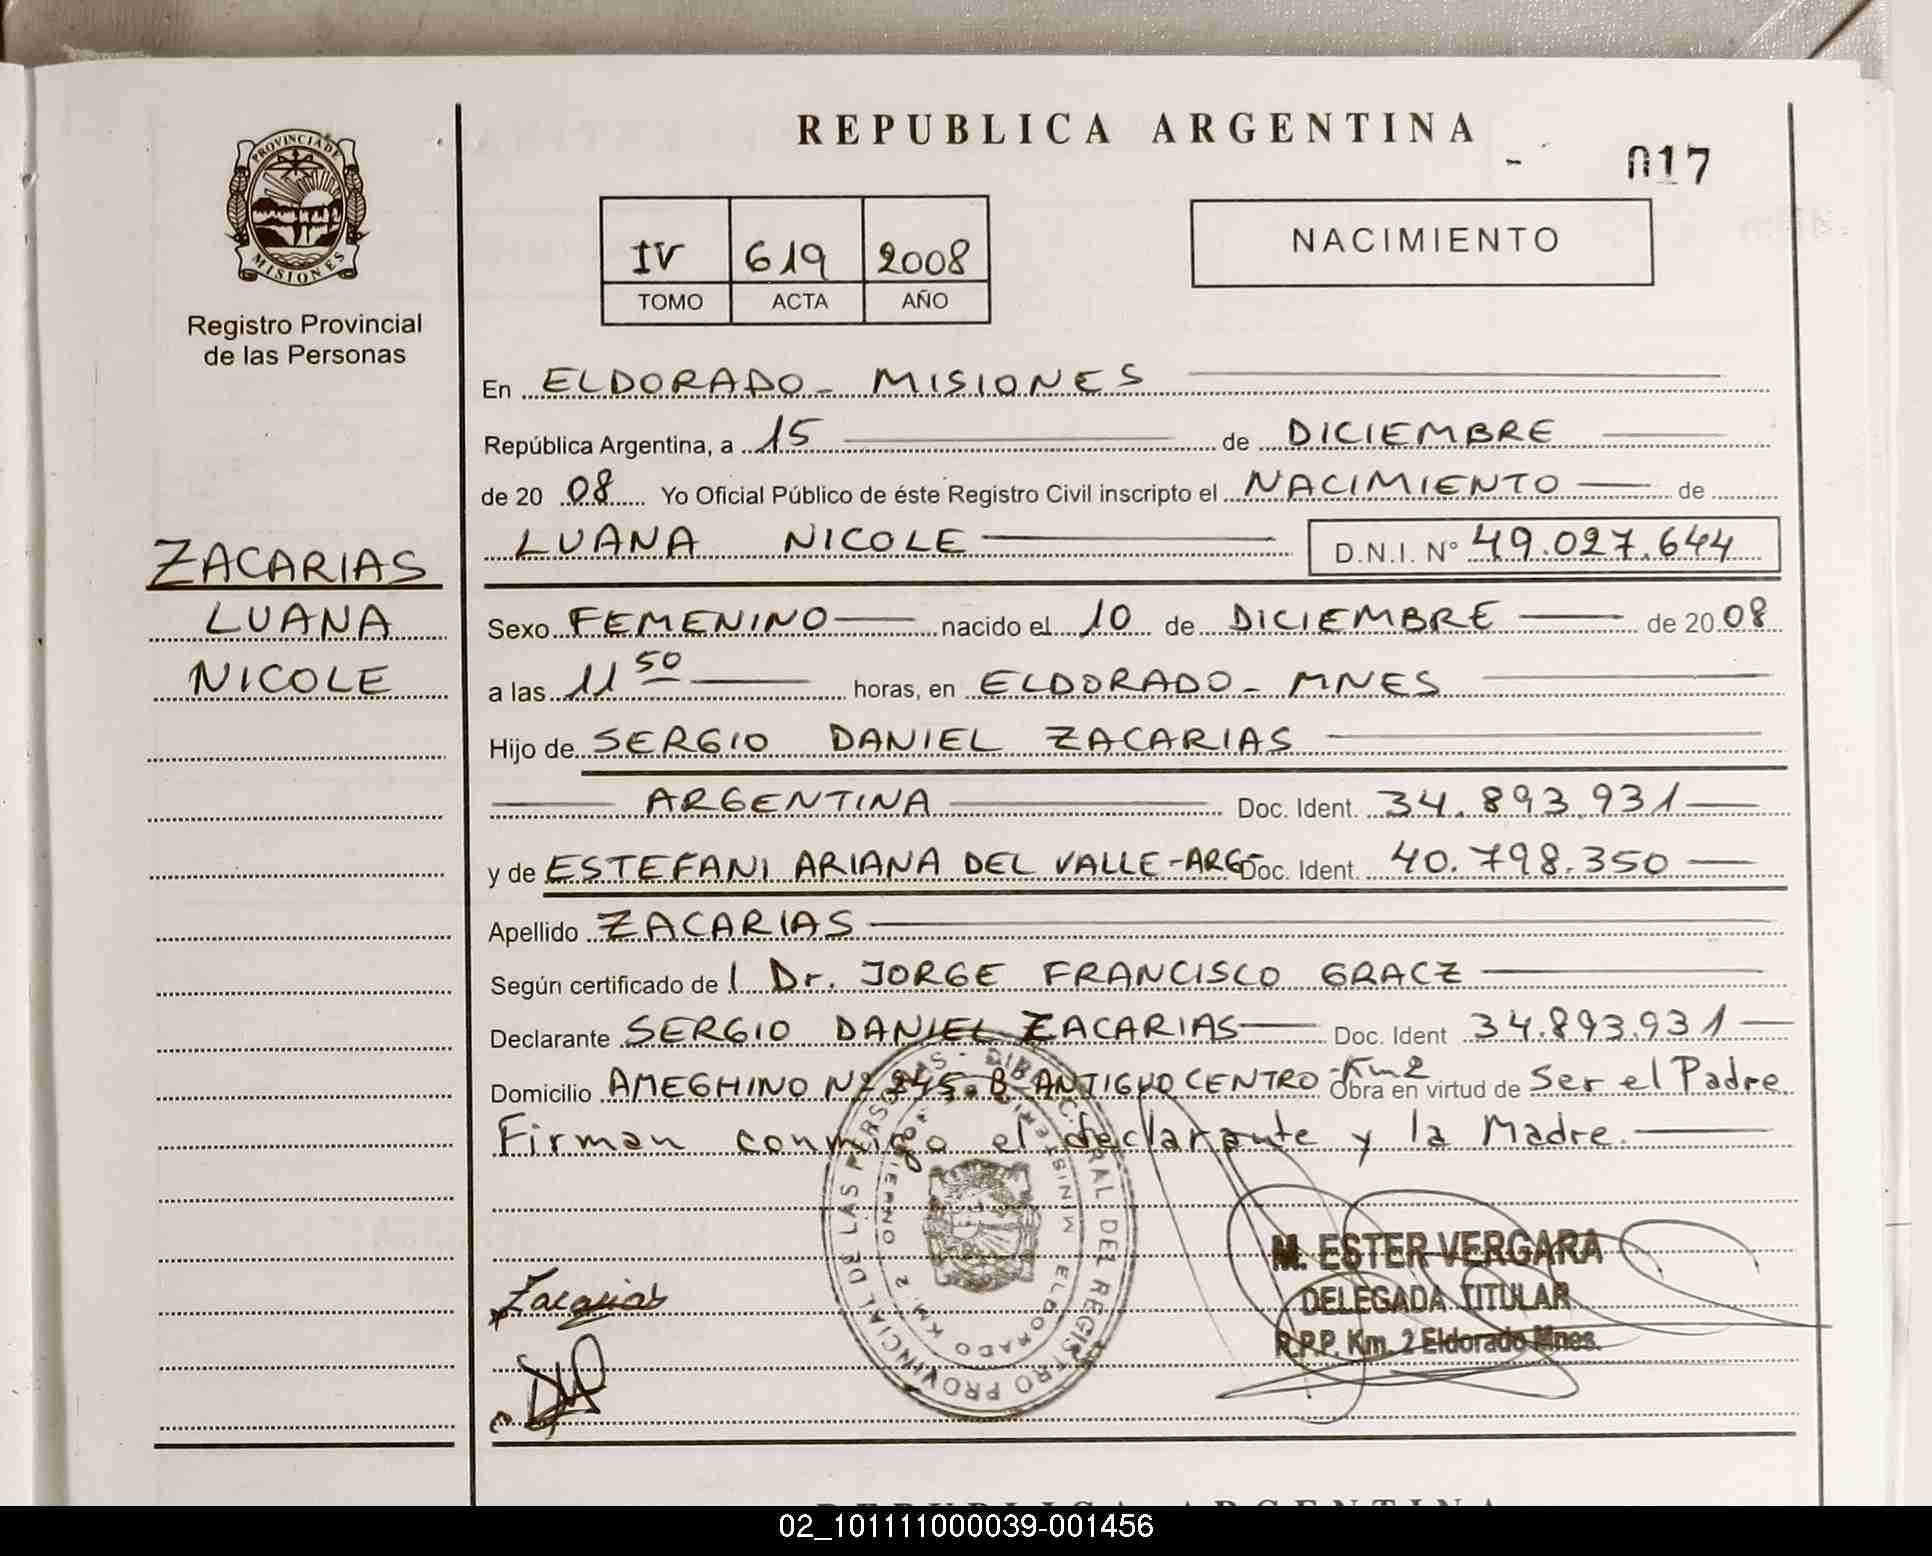 REPUBLICA ARGENTINA
017
PROVINCIA DE
MISIONES
Registro Provincial
de las Personas
IV 619 2008
TOMO ACTA AÑO
NACIMIENTO
En ELDORADO - MISIONES
República Argentina, a 15 de DICIEMBRE
de 20 08 Yo Oficial Público de éste Registro Civil inscripto el NACIMIENTO de
LUANA NICOLE D.N.I. Nº 49.027.644
ZACARIAS
LUANA
NICOLE
Sexo FEMENINO nacido el 10 de DICIEMBRE de 20 08
a las 11 50 horas, en ELDORADO - MNES
Hijo de SERGIO DANIEL ZACARIAS
ARGENTINA Doc. Ident. 34.893.931
y de ESTEFANI ARIANA DEL VALLE-ARG- Doc. Ident. 40.798.350
Apellido ZACARIAS
Según certificado de l Dr. JORGE FRANCISCO GRACZ
Declarante SERGIO DANIEL ZACARIAS Doc. Ident 34.893.931
Domicilio AMEGHINO Nº 845 Bº ANTIGUO CENTRO - Km 2 Obra en virtud de Ser el Padre.
Firman conmigo el declarante y la Madre.
PROVINCIAL DE LAS PERSONAS - DIR. GRAL DEL REGISTRO
ELDORADO KM. 2
Zacarias
M. ESTER VERGARA
DELEGADA TITULAR
R.P.P. Km. 2 Eldorado Mnes.
REPUBLICA ARGENTINA
02_101111000039-001456